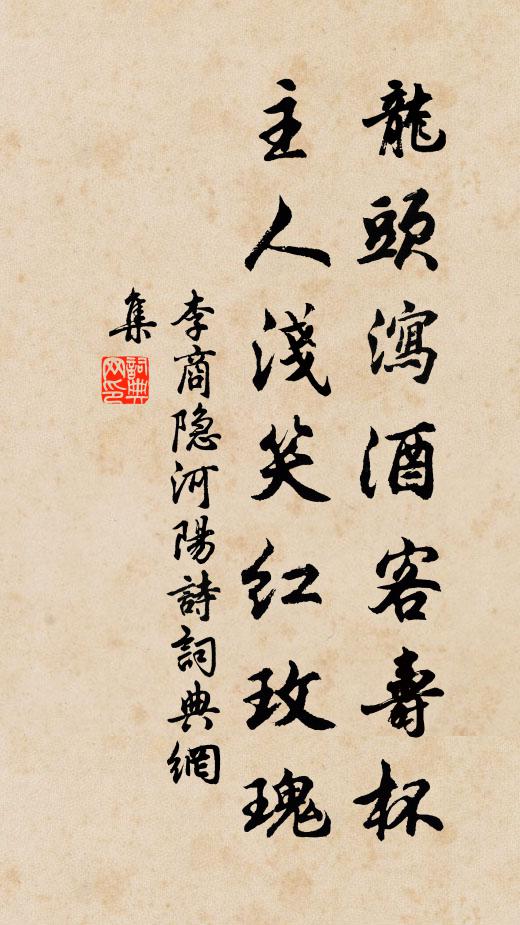 龍頭瀉酒客壽杯
主人淺笑红玫瑰
李商隐河陽詩詞典網
集
詞典网印